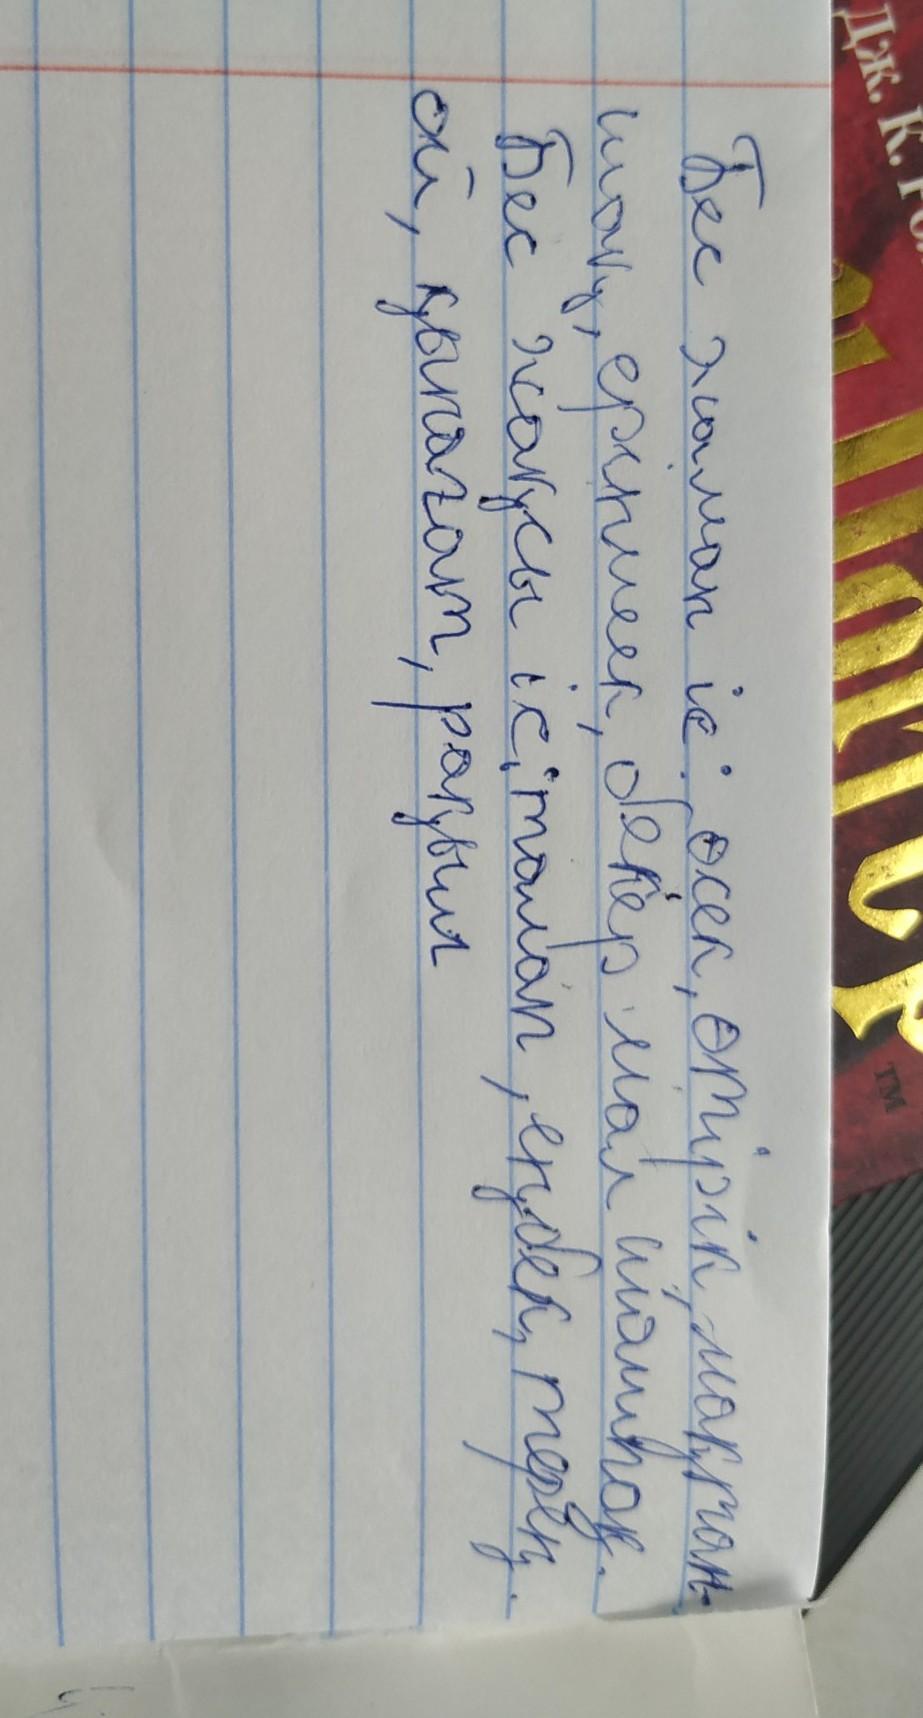 Бес жаман іс: өсек, өтірік, мақтан-
шақ, еріншек, бекер мал шашпақ.
Бес жақсы іс, талап, еңбек, терең
ой, қанағат, рақым
Дж. К.
™